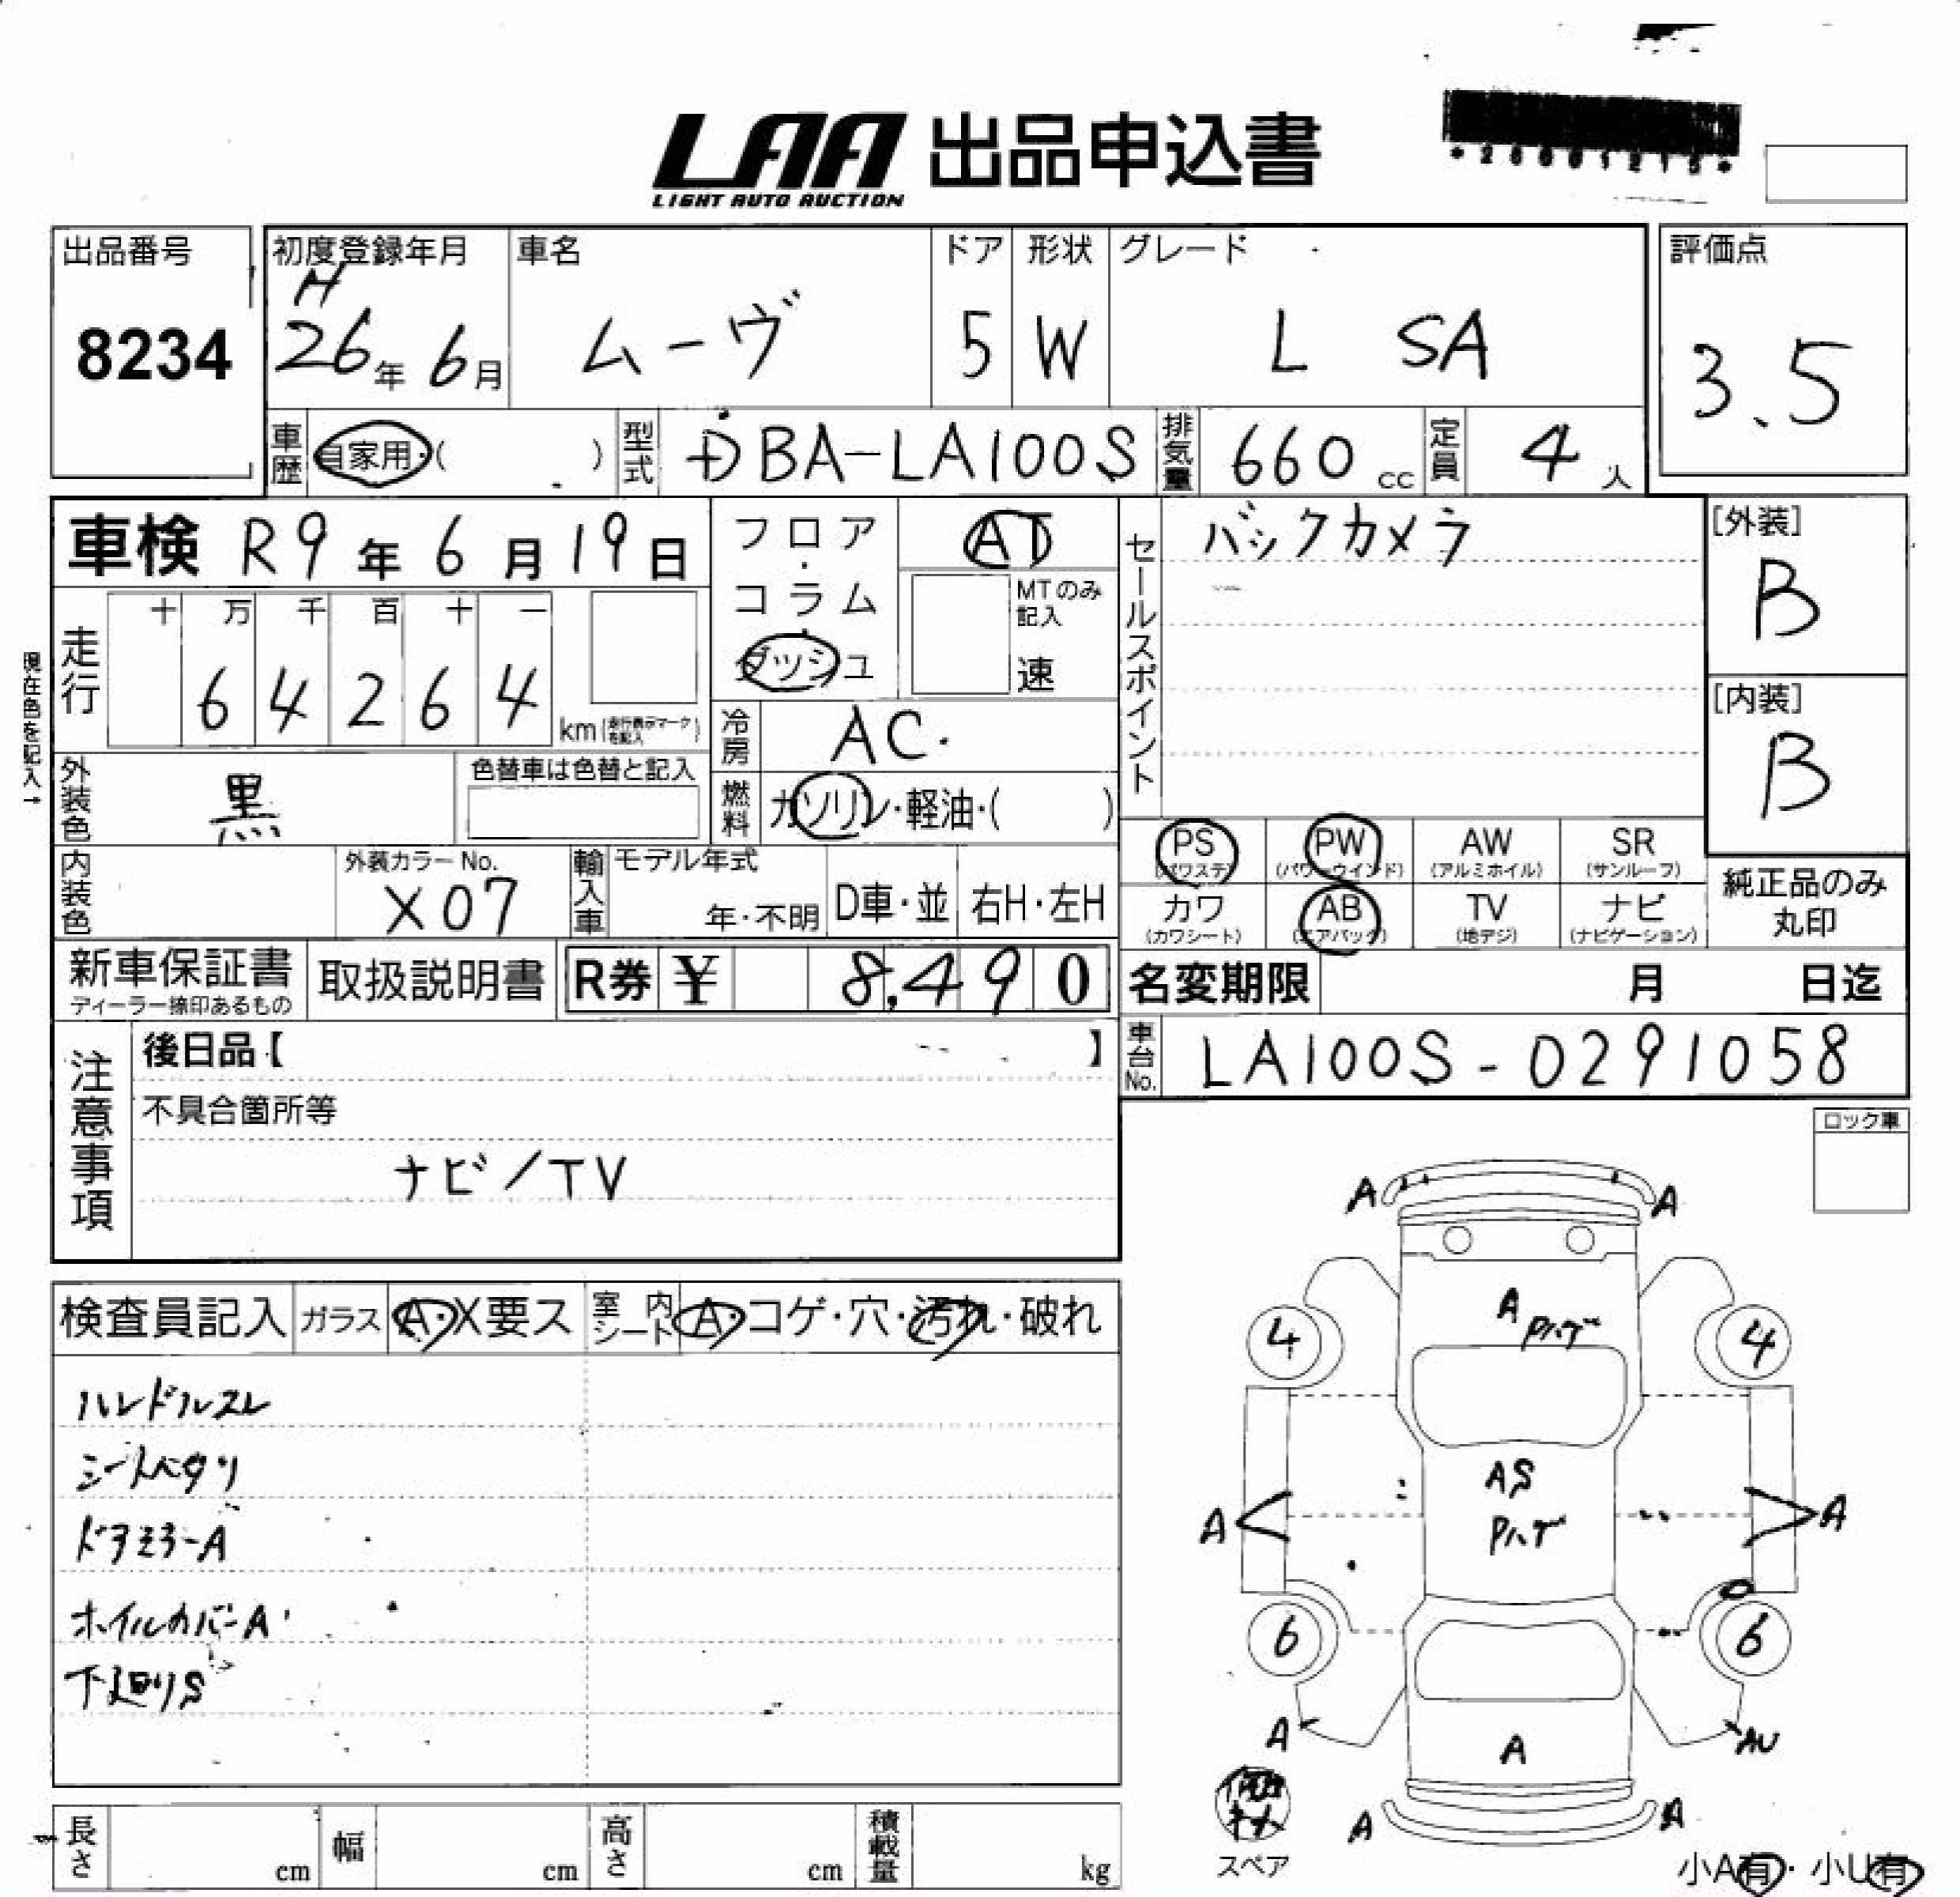 LAA 出品申込書
LIGHT AUTO AUCTION
出品番号
8234
初度登録年月
H
26年 6月
車名
ムーヴ
ドア
5
形状
W
グレード
L SA
評価点
3.5
車歴 自家用・( )
型式 DBA-LA100S
排気量 660 cc
定員 4 人
車検 R9年 6月 19日
フロア・コラム・ダッシュ
AT
MTのみ記入
速
現在色を記入→
走行
十 万 千 百 十 一
6 4 2 6 4 km(走行表示マークを記入)
冷房 AC.
燃料 ガソリン・軽油・( )
外装色 黒
色替車は色替と記入
内装色
外装カラーNo.
X07
輸入車
モデル年式
年・不明
D車・並
右H・左H
セールスポイント
バックカメラ
[外装]
B
[内装]
B
PS (パワステ)
PW (パワーウインド)
AW (アルミホイル)
SR (サンルーフ)
カワ (カワシート)
AB (エアバック)
TV (地デジ)
ナビ (ナビゲーション)
純正品のみ
丸印
新車保証書
ディーラー捺印あるもの
取扱説明書
R券 ¥ 8,490
名変期限 月 日迄
車台No. LA100S-0291058
注意事項
後日品【 】
不具合箇所等
ナビ/TV
ロック車
検査員記入
ガラス A・X要ス
室内シート A・コゲ・穴・汚れ・破れ
ハンドルスレ
シートヘタリ
ドアミラーA
ホイルカバーA
下廻りS
A A
A
Pハゲ
4 4
AS
Pハゲ
A A
6 6
A AU
A
A A
スペア
小A有・小U有
長さ cm
幅 cm
高さ cm
積載量 kg